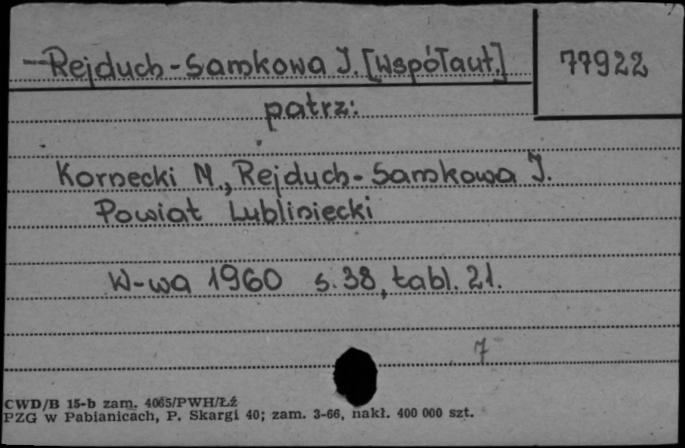 Rejduch-Samkowa J. [współaut.]
77922
patrz:
Kornecki M., Rejduch-Samkowa J.
Powiat Lubliniecki
W-wa 1960 s.38, tabl. 21.
7
CWD/B 15-b zam. 4065/PWH/ŁŹ
PZG w Pabianicach, P. Skargi 40; zam. 3-66, nakł. 400 000 szt.